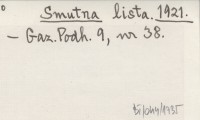 Smutna lista. 1921.
- Gaz. Podh. 9, nr 38.